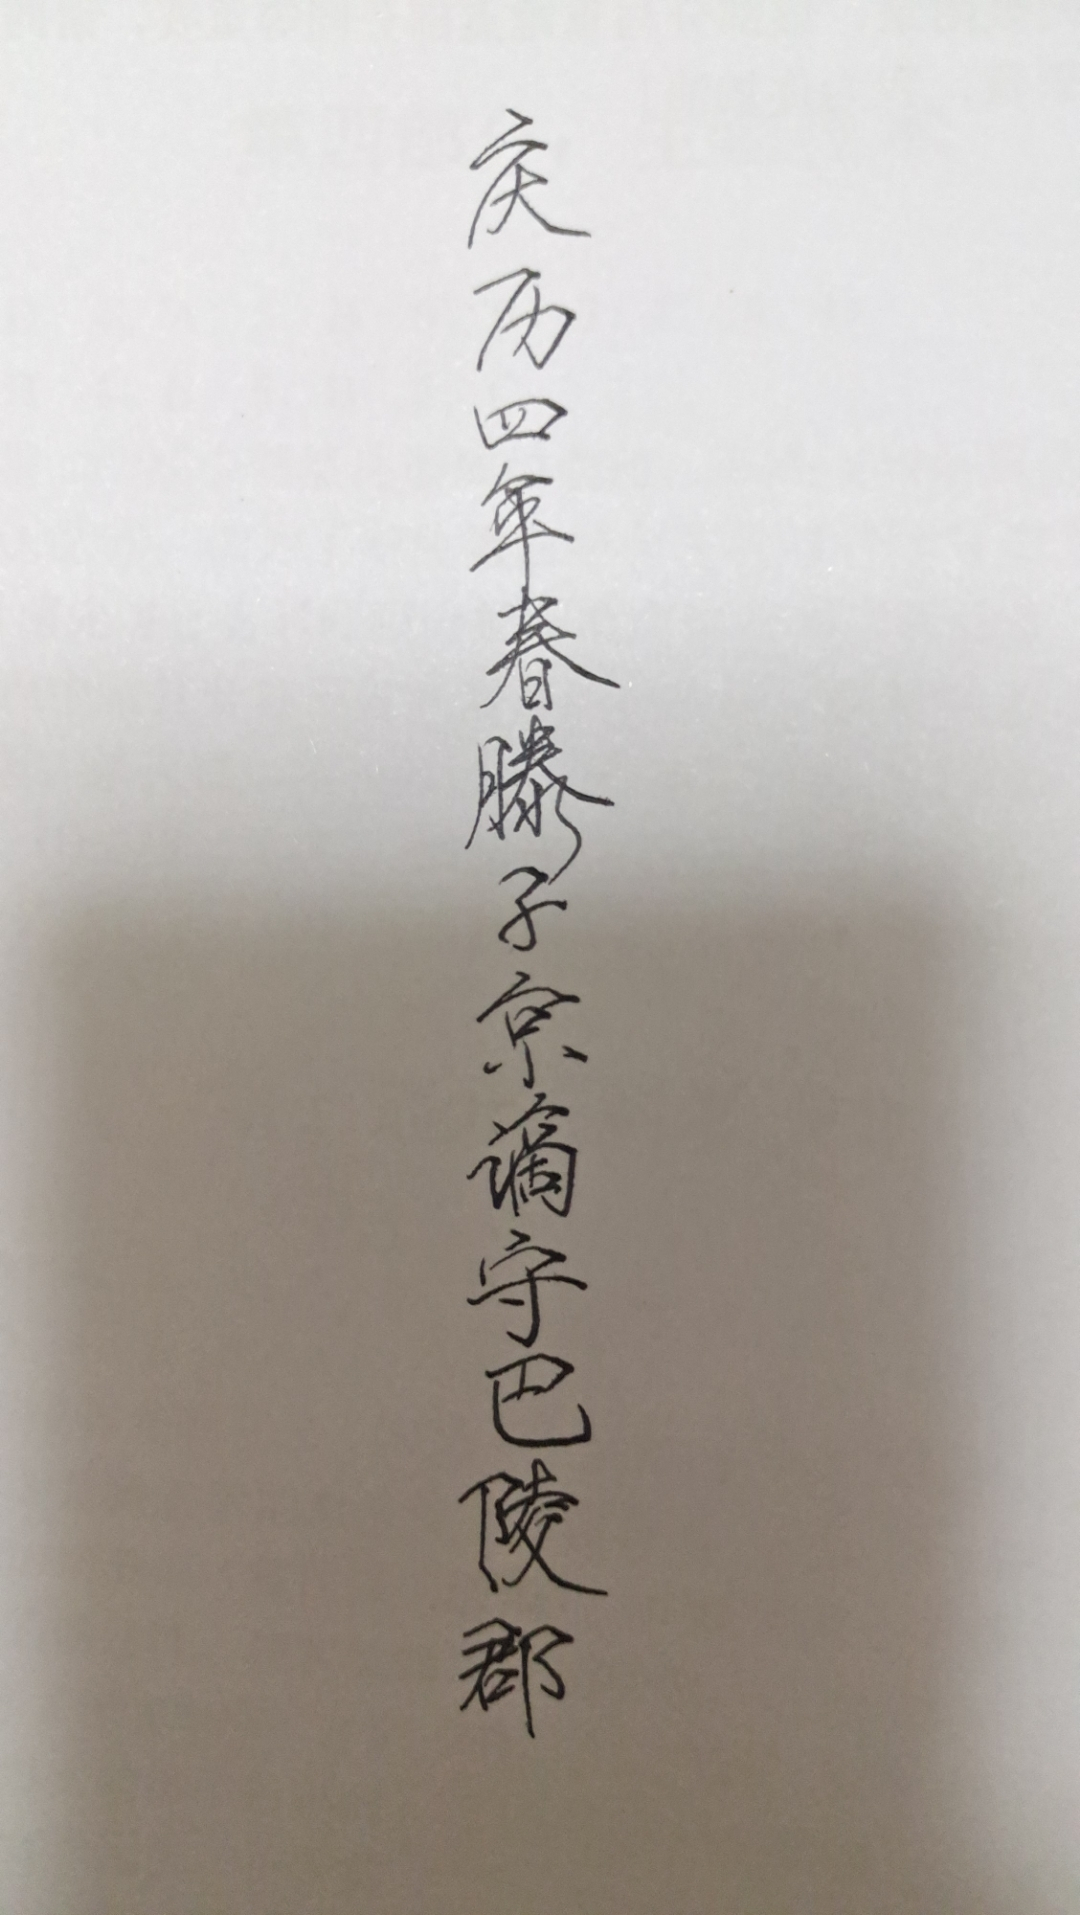 庆历四年春滕子京谪守巴陵郡